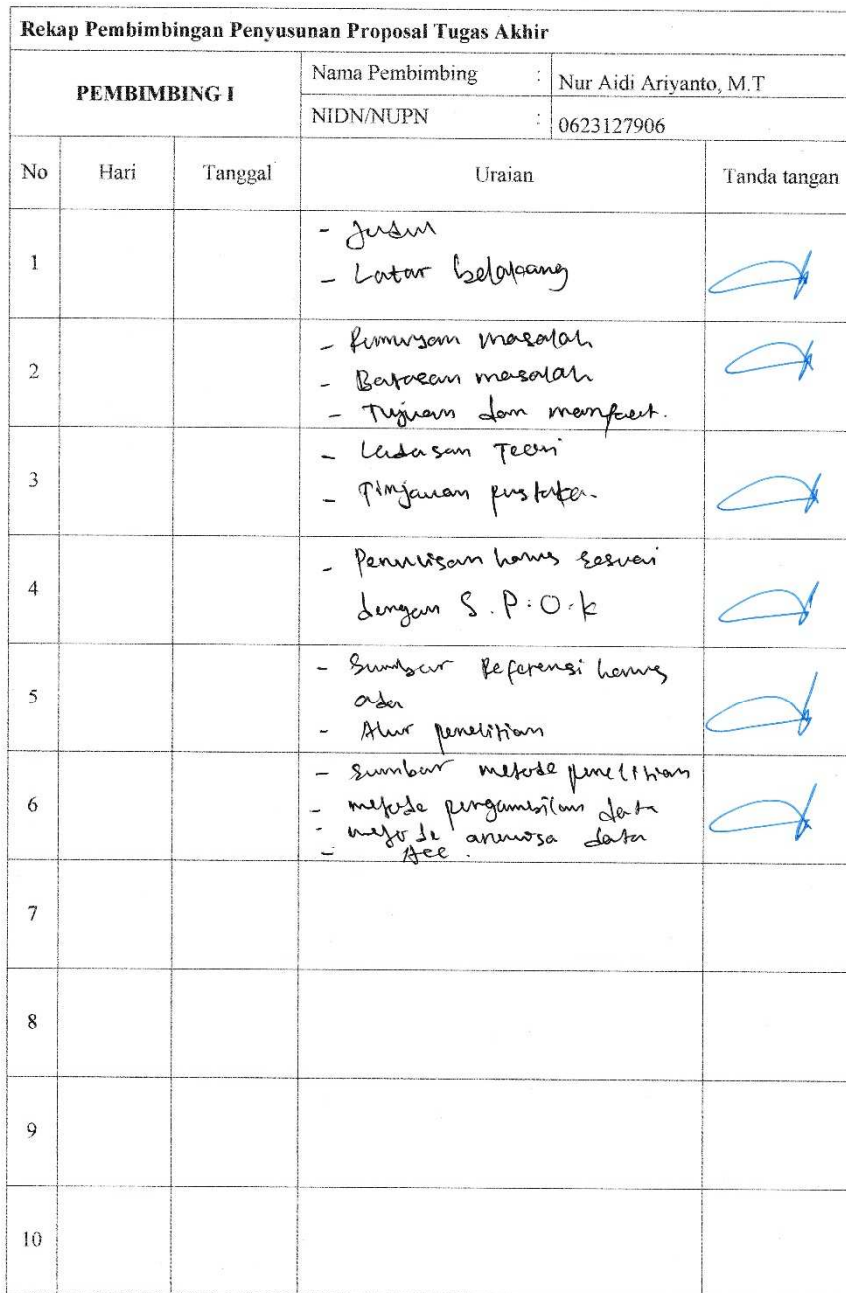 Rekap Pembimbingan Penyusunan Proposal Tugas Akhir
PEMBIMBING I
Nama Pembimbing : Nur Aidi Ariyanto, M.T
NIDN/NUPN : 0623127906
No Hari Tanggal Uraian Tanda tangan
1
- Judul
- Latar belakang
2
- Rumusan masalah
- Batasan masalah
- Tujuan dan manfaat.
3
- Landasan Teori
- Tinjauan pustaka.
4
- Penulisan harus sesuai
dengan S.P.O.K
5
- Sumber Referensi harus
ada
- Alur penelitian
6
- Sumber metode penelitian
- metode pengambilan data
- metode analisa data
- Acc.
7
8
9
10